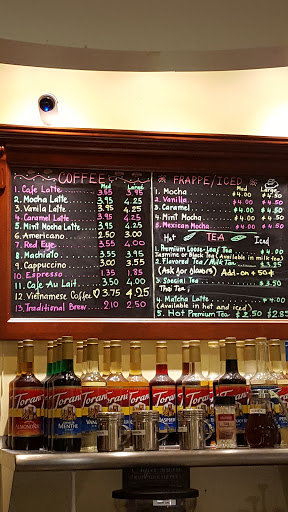 COFFEE Med Large
1. Cafe Latte 3.55 3.95
2. Mocha Latte 3.95 4.25
3. Vanilla Latte 3.95 4.25
4. Caramel Latte 3.95 4.25
5. Mint Mocha Latte 3.95 4.25
6. Americano 2.50 3.00
7. Red Eye 3.55 4.00
8. Machiato 3.55 3.95
9. Cappuccino 3.00 3.55
10. Espresso 1.35 1.85
11. Cafe Au Lait 3.50 4.00
12. Vietnamese Coffee 3.75 4.25
13. Traditional Brew 2.10 2.50
FRAPPE/ICED Med Large
1. Mocha $4.00 $4.50
2. Vanilla $4.00 $4.50
3. Caramel $4.00 $4.50
4. Mint Mocha $4.00 $4.50
5. Mexican Mocha $4.00 $4.50
Hot TEA Iced
1. Premium Loose-Leaf Tea $4.00
Jasmine or Black Tea (Available in milk tea)
2. Flavored Tea/Milk Tea $3.25
(Ask for flavors) Add-on 50¢
3. Special Tea $3.50
Thai Tea
4. Matcha Latte $4.50
(Available in hot and iced)
5. Hot Premium Tea $2.50 $2.85
Torani
Torani
Torani
Torani
Torani
Torani